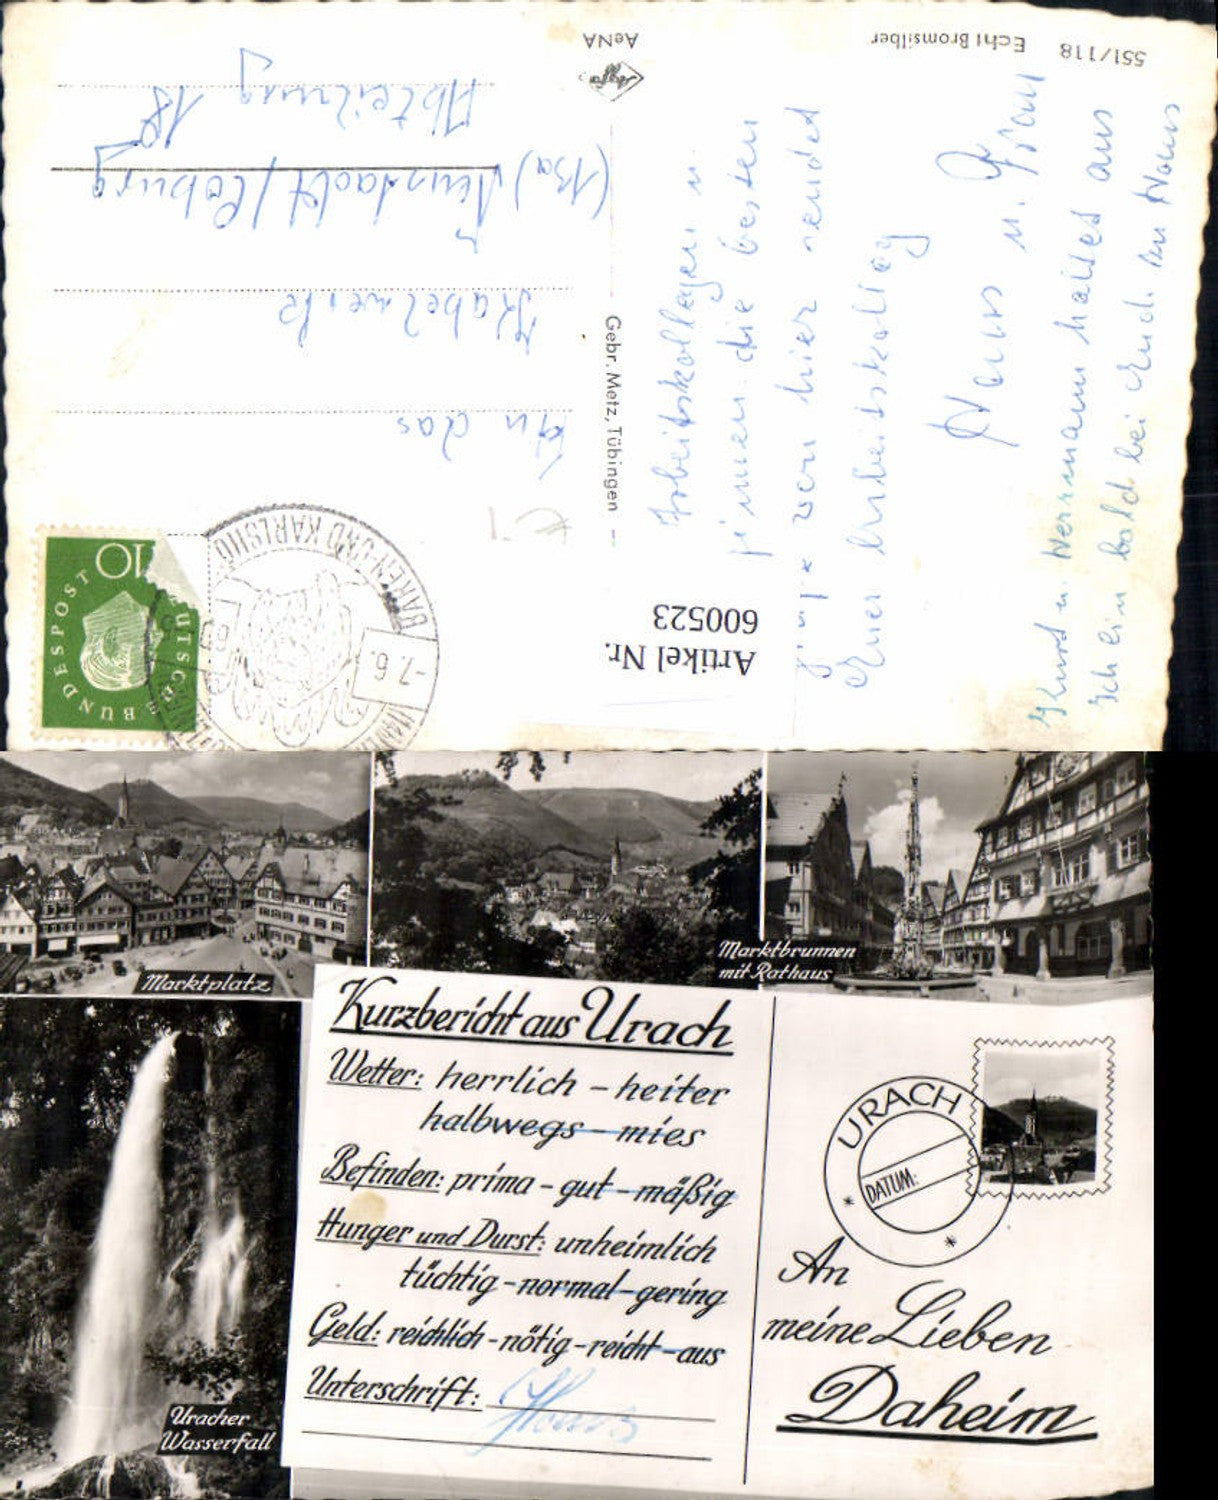 551/118 Echt Bromsilber
AeNA
Agfa
Gebr. Metz, Tübingen
Artikel Nr.
600523
An das
Kabelwerk
(13a) Neustadt/Coburg
Abteilung 18
Arbeitskollegen u.
innen die besten
von hier sendet
Euer Arbeitskolleg
Hans u. Frau
Kurt u. Herrmann haltet aus
Ich bin bald bei Euch zu Haus
DEUTSCHE BUNDESPOST
10
-7.6.
Marktplatz
Marktbrunnen
mit Rathaus
Uracher
Wasserfall
Kurzbericht aus Urach
Wetter: herrlich - heiter
halbwegs - mies
Befinden: prima - gut - mäßig
Hunger und Durst: unheimlich
tüchtig - normal - gering
Geld: reichlich - nötig - reicht - aus
Unterschrift: Hans
URACH
DATUM:
An
meine Lieben
Daheim